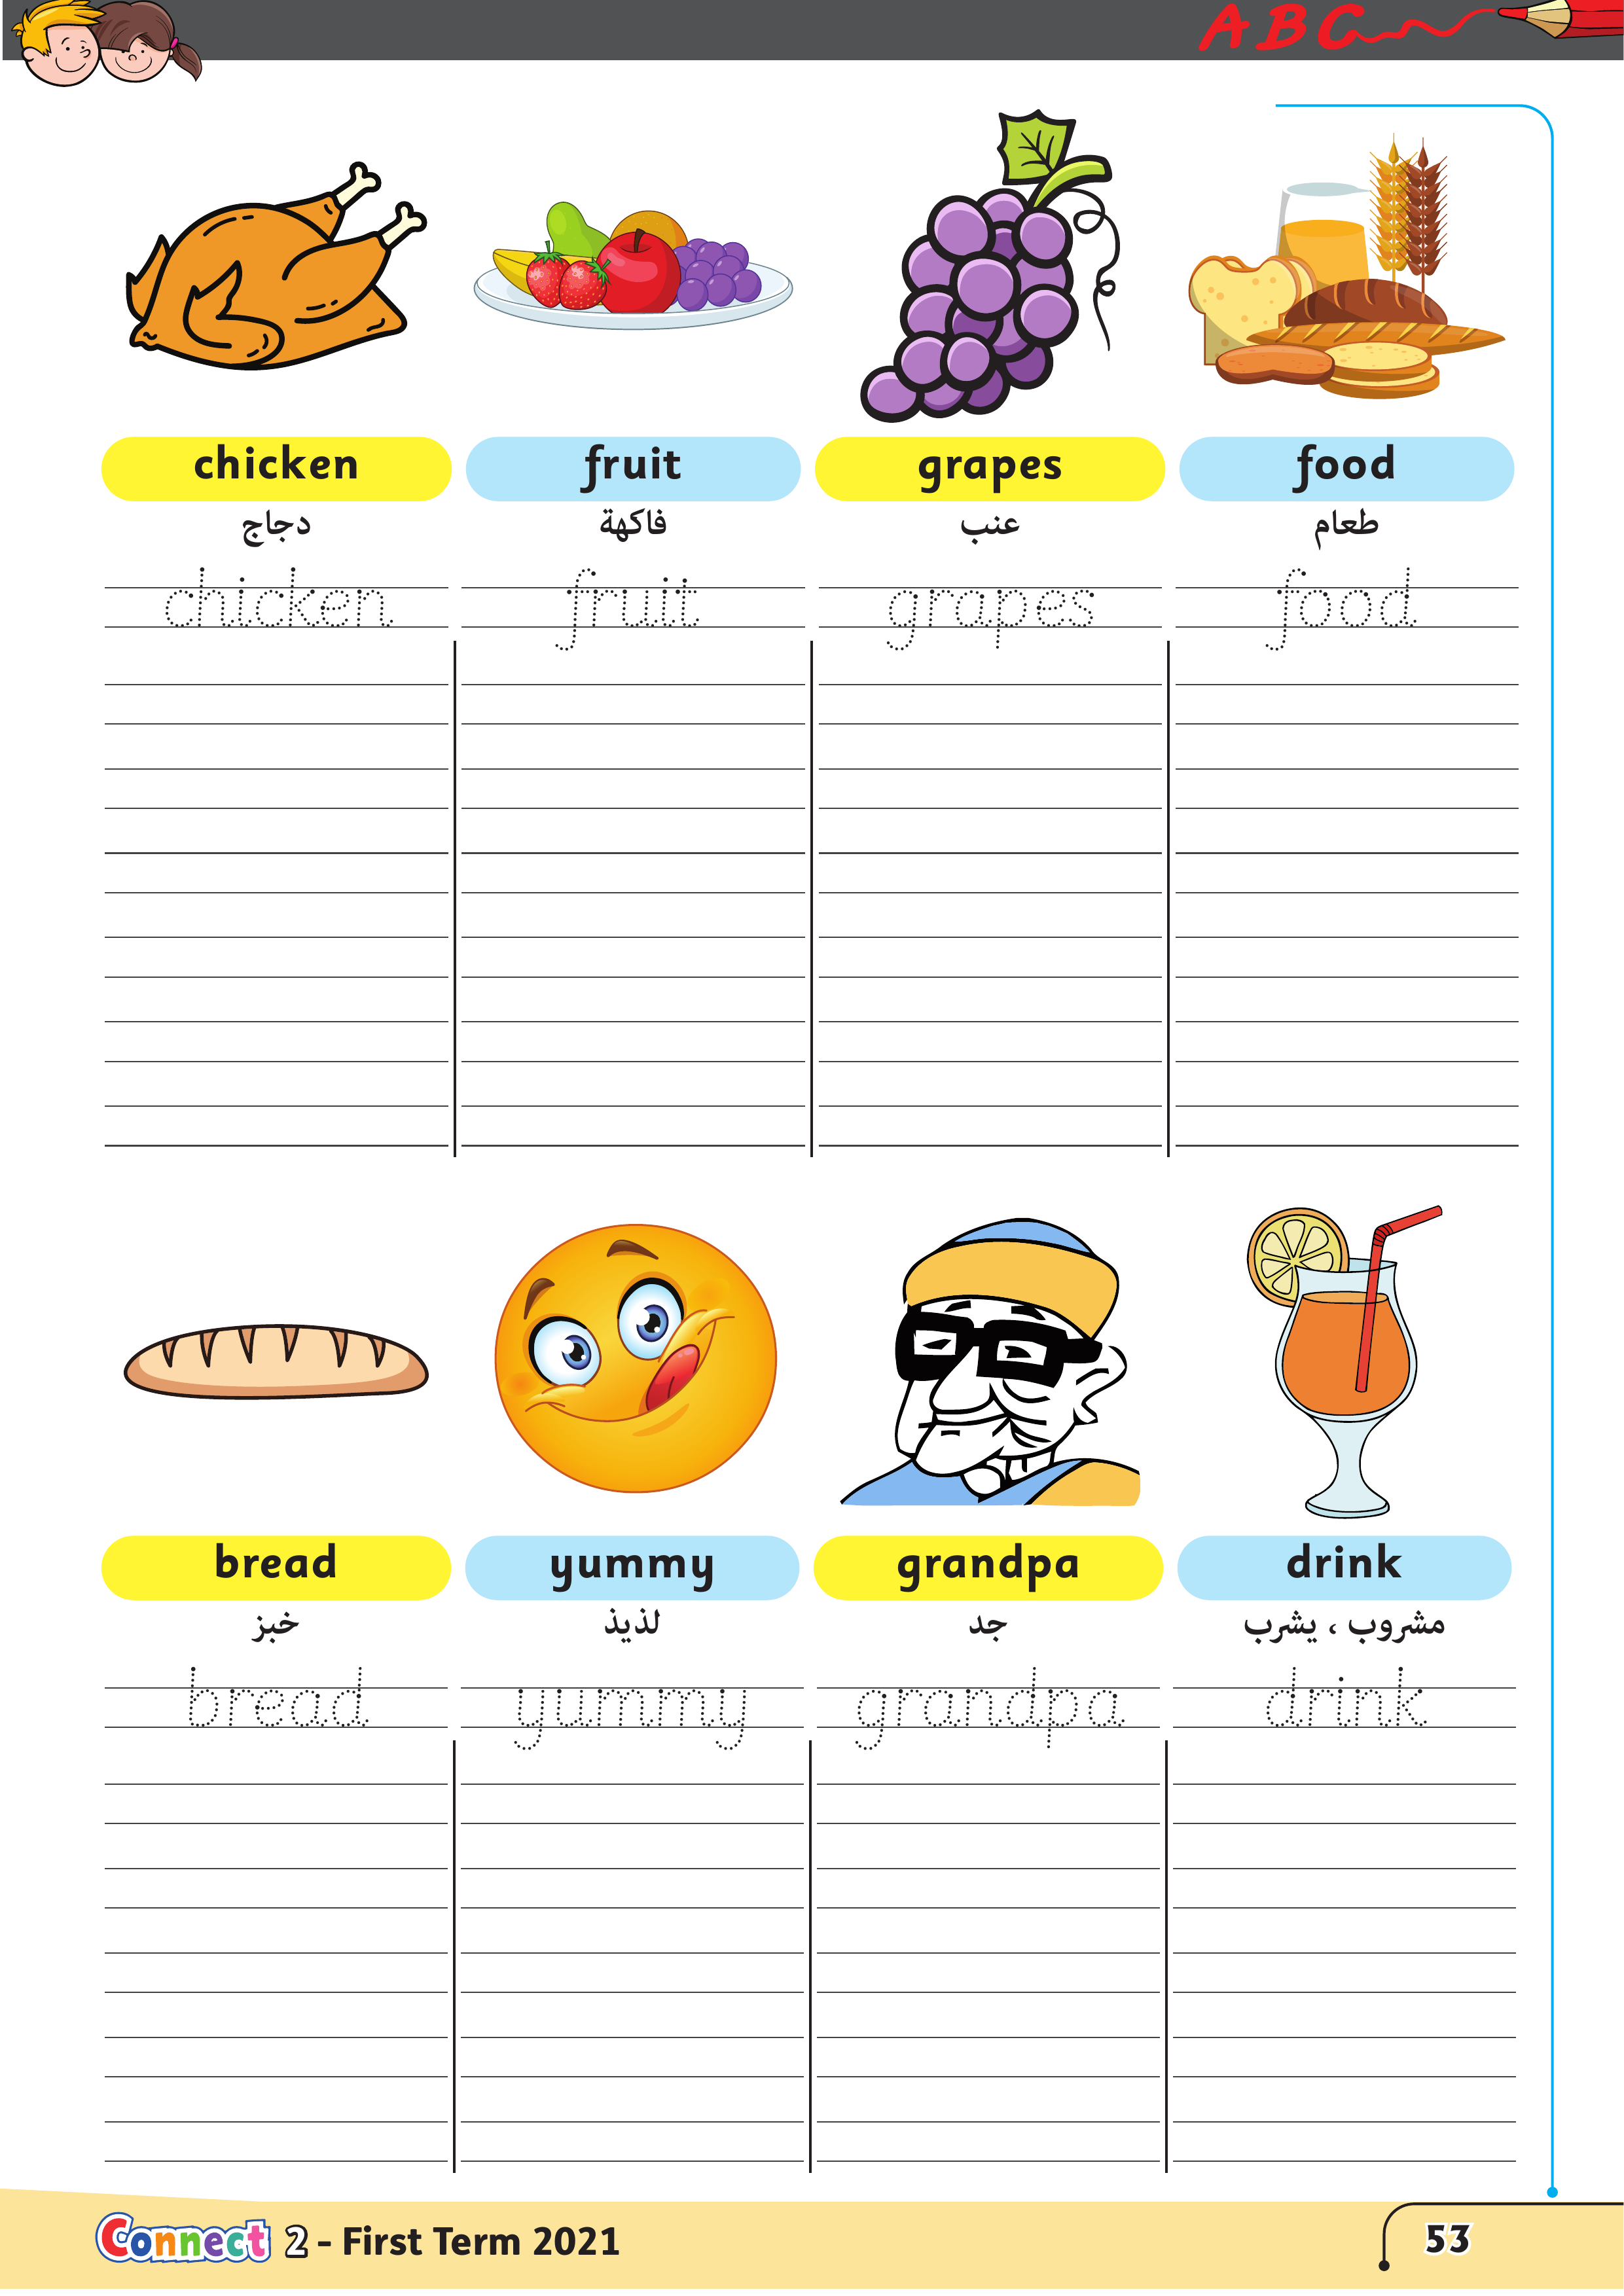 ABC
chicken fruit grapes food
دجاج فاكهة عنب طعام
chicken fruit grapes food
bread yummy grandpa drink
خبز لذيذ جد مشروب ، يشرب
bread yummy grandpa drink
Connect 2 - First Term 2021
53